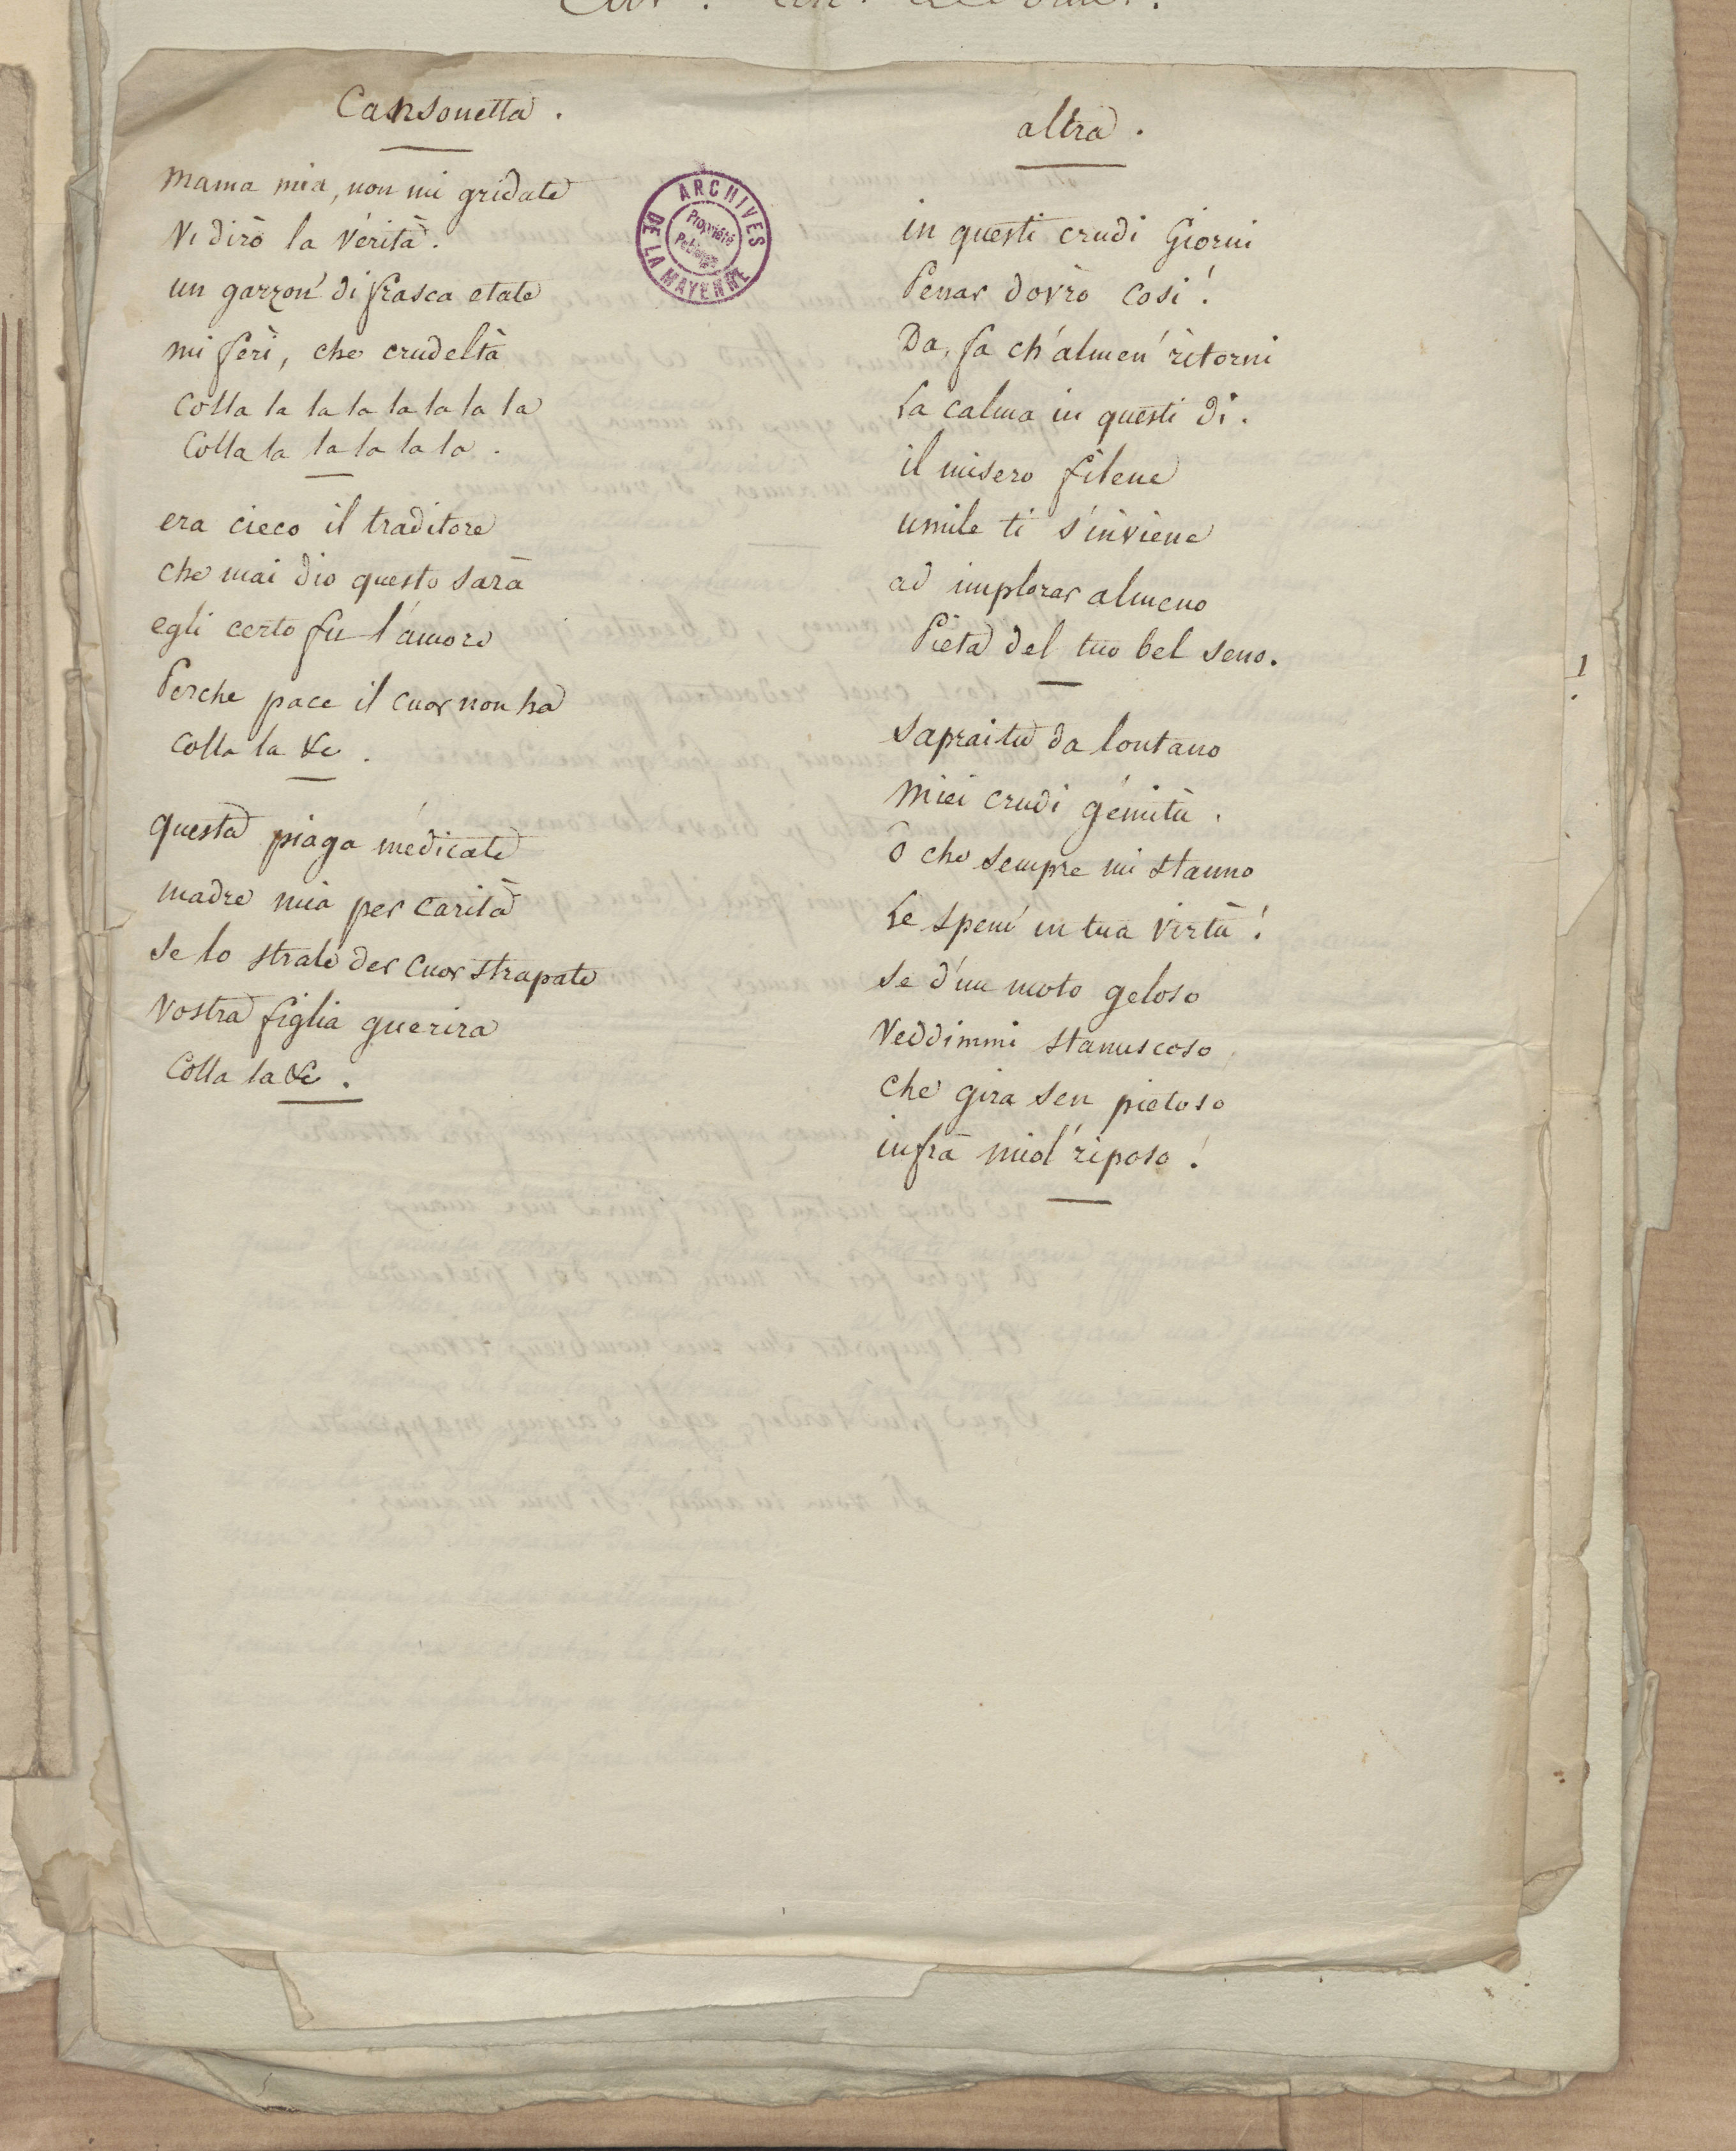 Cansonetta.
mama mia, non mi gridate
Vi dirò la vérità.
un garzon' di frasca etate
mi ferì, che crudeltà
Colla la la la la la la la
Colla la la la la la.
era cieco il traditore
che mai dio questo sarà
egli certo fu l'amore
Perche pace il cuor non ha
Colla la &c.
questa piaga médicate
madre mia per carità
Se lo strale der cuor strapate
Vostra figlia guerira
Colla la &c.
altra.
in questi crudi Giorni
Penar dovrò cosi!
Da, fa ch'almen' ritorni
La calma in questi di.
il misero fileno
umile ti s'inviene
ad implorar almeno
Pieta del tuo bel seno.
Sapraitu da lontano
miei crudi gémitù.
ô che sempre mi stanno
Le spem' in tua virtù!
se d'un moto geloso
Veddimmi stanuscoso
che gira sen pietoso
infrà miol' riposo!
1
ARCHIVES DE LA MAYENNE
Propriété Publique